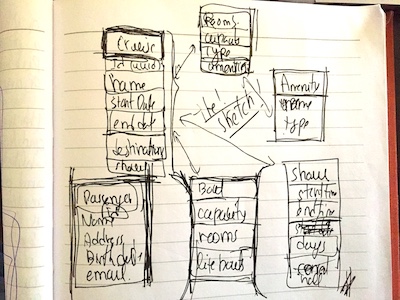 Cruise
Id (uuid)
name
start Date
end date
destination
show
Rooms
capacity
Type
amenities
The 1st
sketch!
Amenity
name
type
Passenger
Name
Address
Birth date
email
Boat
capacity
rooms
life boats
show
start time
end time
days